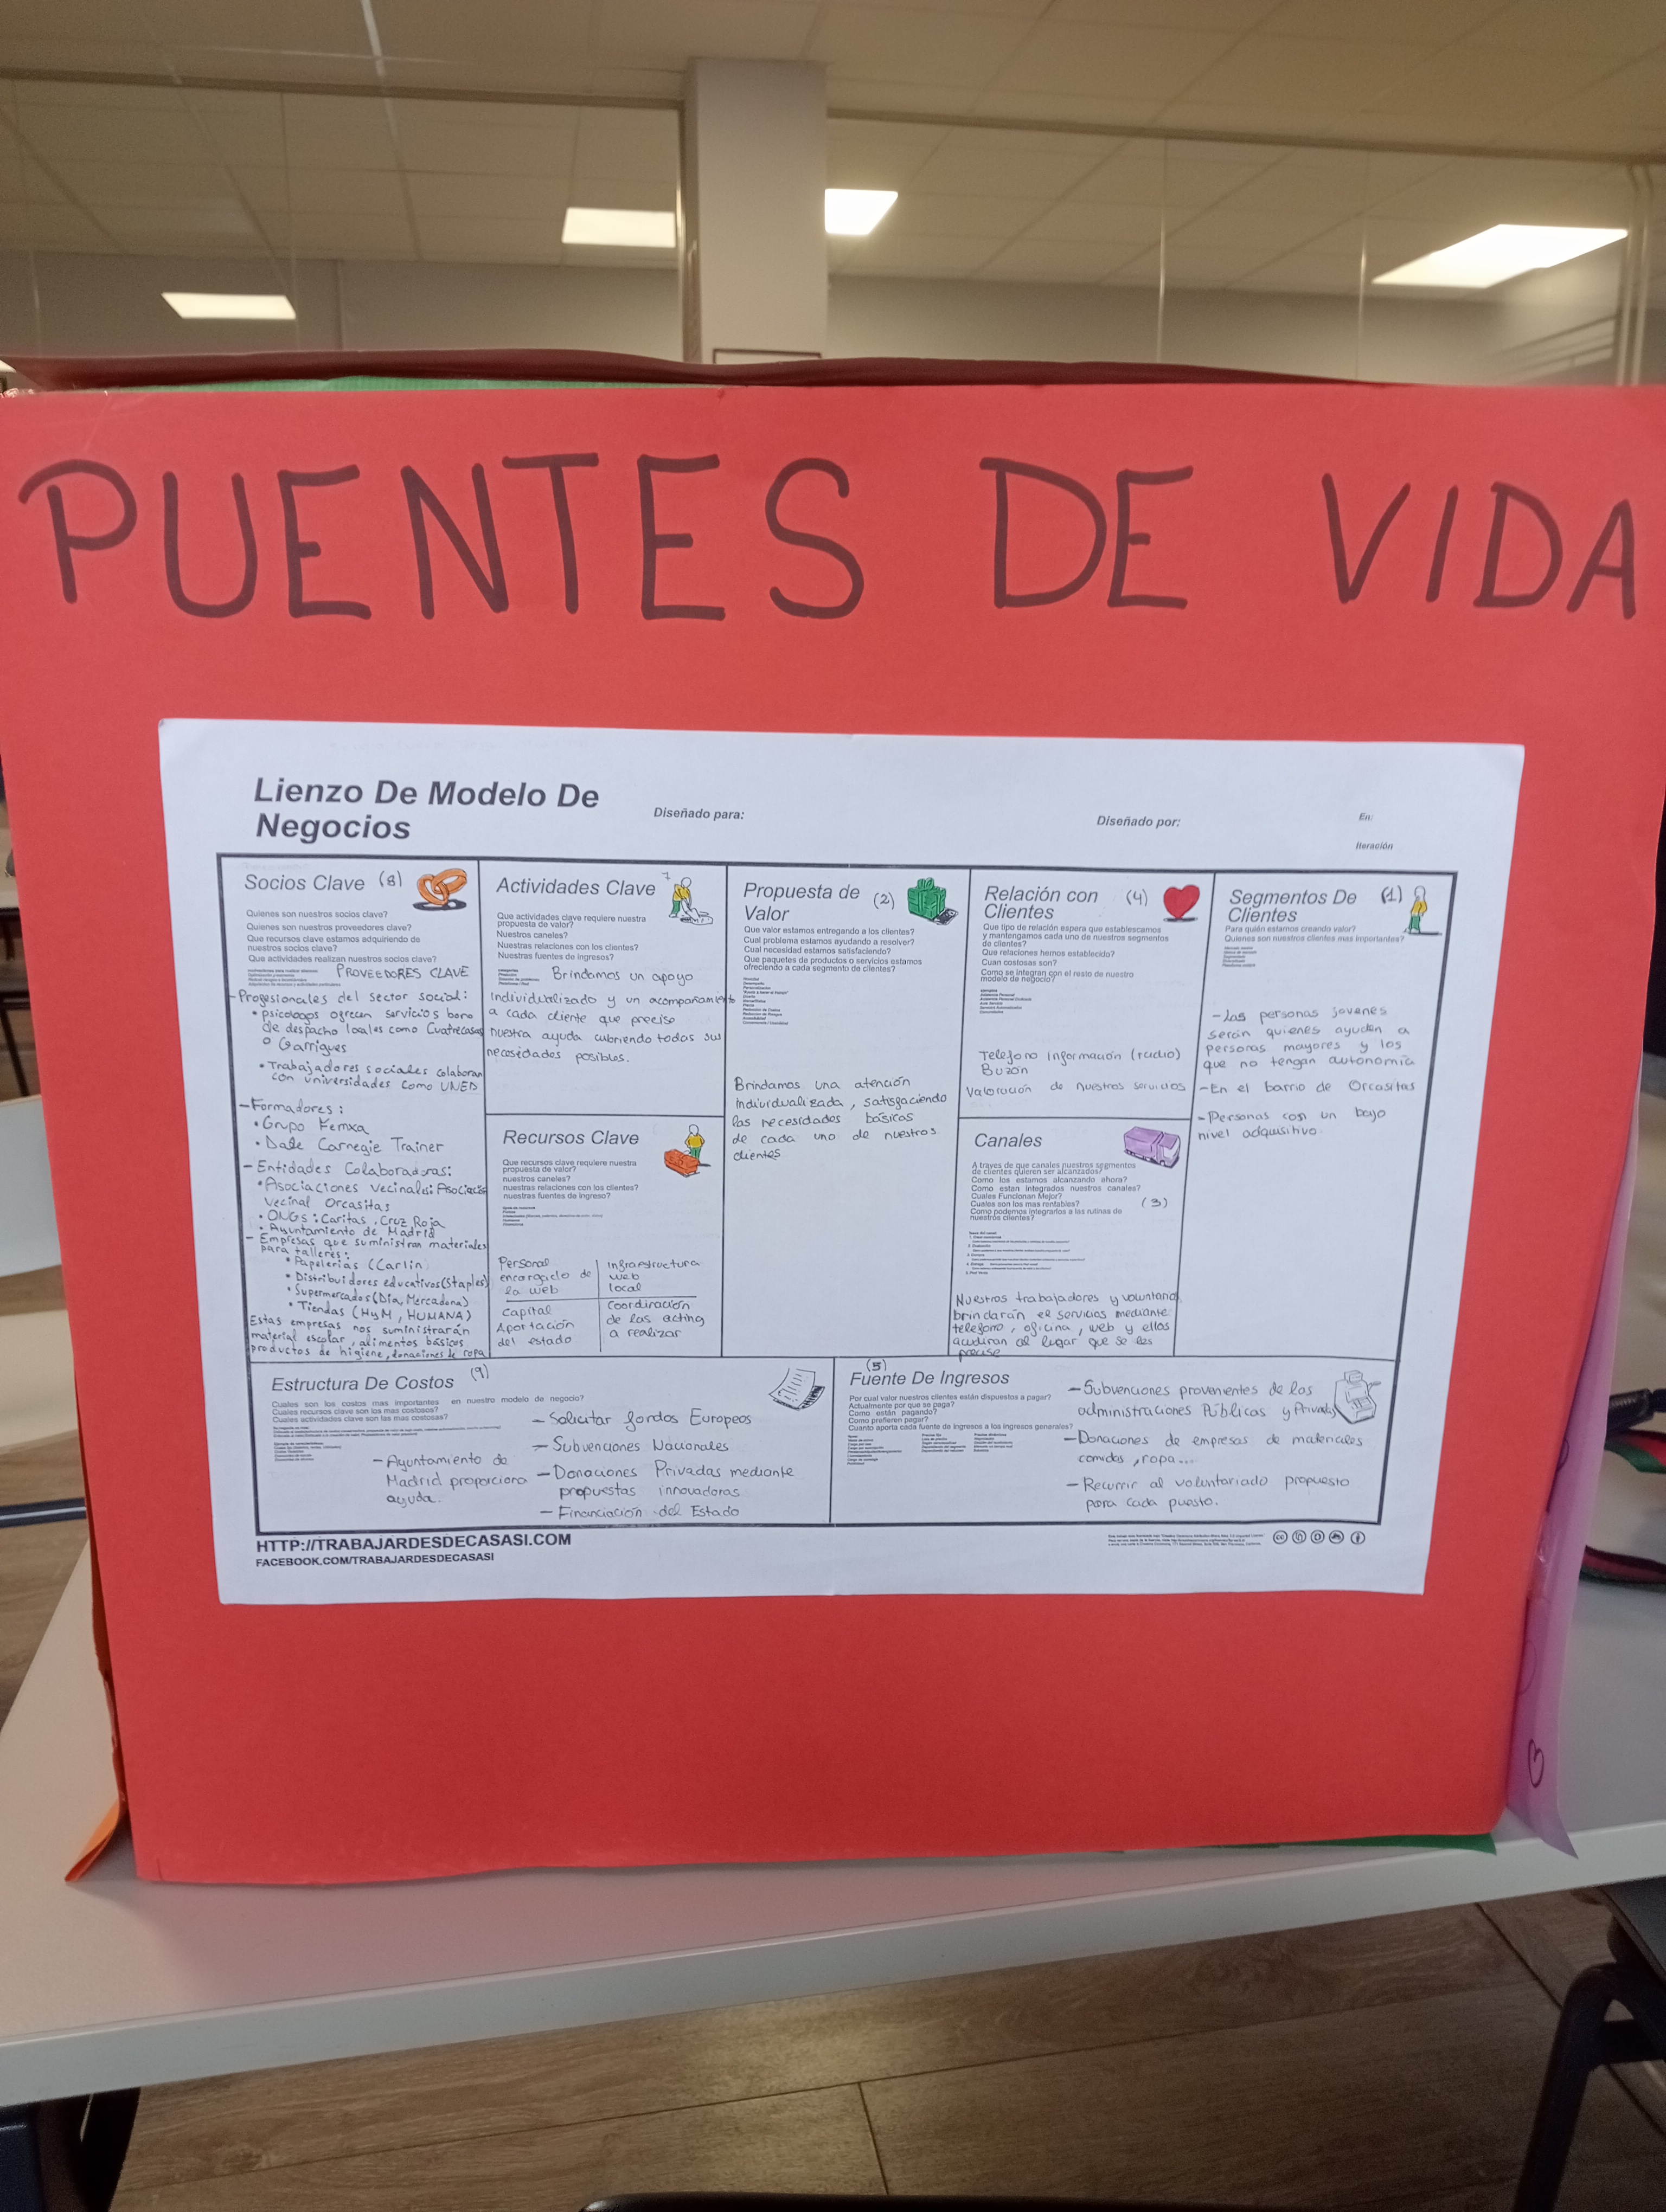 PUENTES DE VIDA
Lienzo De Modelo De
Negocios
Diseñado para:
Diseñado por:
En:
Iteración
Socios Clave (8)
Quienes son nuestros socios clave?
Quienes son nuestros proveedores clave?
Que recursos clave estamos adquiriendo de
nuestros socios clave?
Que actividades realizan nuestros socios clave?
PROVEEDORES CLAVE
- Profesionales del sector social:
• psicologos ofrecen servicios bono
de despacho locales como Cuatrecasas
o Garrigues
• Trabajadores sociales colaboran
con universidades como UNED
- Formadores:
• Grupo Femxa
• Dale Carnegie Trainer
- Entidades Colaboradoras:
• Asociaciones vecinales: Asociación
vecinal Orcasitas
• ONGs: Caritas, Cruz Roja
• Ayuntamiento de Madrid
- Empresas que suministran materiales
para talleres:
• Papelerías (Carlin)
• Distribuidores educativos (Staples)
• Supermercados (Dia, Mercadona)
• Tiendas (HyM, HUMANA)
Estas empresas nos suministrarán
material escolar, alimentos básicos
productos de higiene, donaciones de ropa
Actividades Clave 7
Que actividades clave requiere nuestra
propuesta de valor?
Nuestros canales?
Nuestras relaciones con los clientes?
Nuestras fuentes de ingresos?
Brindamos un apoyo
individualizado y un acompañamiento
a cada cliente que precise
nuestra ayuda cubriendo todas sus
necesidades posibles.
Recursos Clave
Que recursos clave requiere nuestra
propuesta de valor?
nuestros canales?
nuestras relaciones con los clientes?
nuestras fuentes de ingreso?
Personal
encargado de
la web
infraestructura
web
local
Capital
Aportación
del estado
Coordinación
de las acting
a realizar
Propuesta de
Valor (2)
Que valor estamos entregando a los clientes?
Cual problema estamos ayudando a resolver?
Cual necesidad estamos satisfaciendo?
Que paquetes de productos o servicios estamos
ofreciendo a cada segmento de clientes?
Brindamos una atención
individualizada, satisfaciendo
las necesidades básicas
de cada uno de nuestros
clientes
Relación con (4)
Clientes
Que tipo de relación espera que establescamos
y mantengamos cada uno de nuestros segmentos
de clientes?
Que relaciones hemos establecido?
Cuan costosas son?
Como se integran con el resto de nuestro
modelo de negocio?
Telefono Información (radio)
Buzón
Valoración de nuestros servicios
Canales
A traves de que canales nuestros segmentos
de clientes quieren ser alcanzados?
Como los estamos alcanzando ahora?
Como estan integrados nuestros canales?
Cuales Funcionan Mejor?
Cuales son los mas rentables? (3)
Como podemos integrarlos a las rutinas de
nuestros clientes?
Nuestros trabajadores y voluntario
brindarán el servicios mediante
telefono, oficina, web y ellos
acudiran al lugar que se les
precise
Segmentos De (1)
Clientes
Para quién estamos creando valor?
Quienes son nuestros clientes mas importantes?
- Las personas jovenes
serán quienes ayuden a
personas mayores y los
que no tengan autonomía
- En el barrio de Orcasitas
- Personas con un bajo
nivel adquisitivo.
(9)
Estructura De Costos
Cuales son los costos mas importantes en nuestro modelo de negocio?
Cuales recursos clave son los mas costosos?
Cuales actividades clave son las mas costosas?
- Ayuntamiento de
Madrid proporciona
ayuda.
- Solicitar fondos Europeos
- Subvenciones Nacionales
- Donaciones Privadas mediante
propuestas innovadoras
- Financiación del Estado
(5)
Fuente De Ingresos
Por cual valor nuestros clientes están dispuestos a pagar?
Actualmente por que se paga?
Como están pagando?
Como prefieren pagar?
Cuanto aporta cada fuente de ingresos a los ingresos generales?
- Subvenciones provenientes de las
administraciones Públicas y Privadas
- Donaciones de empresas de materiales
comidas, ropa...
- Recurrir al voluntariado propuesto
para cada puesto.
HTTP://TRABAJARDESDECASASI.COM
FACEBOOK.COM/TRABAJARDESDECASASI